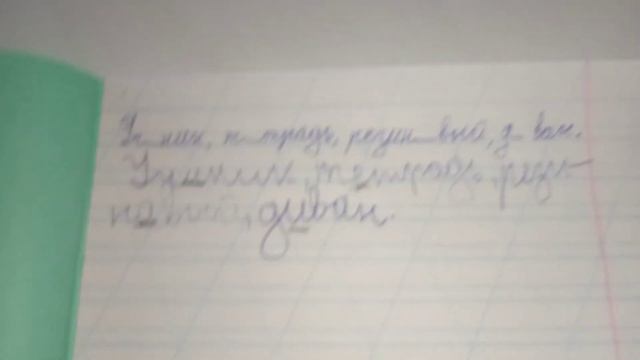 Уч_ник, т_традь, резин_вый, д_ван.
Ученик, тетрадь, рези-
новый, диван.